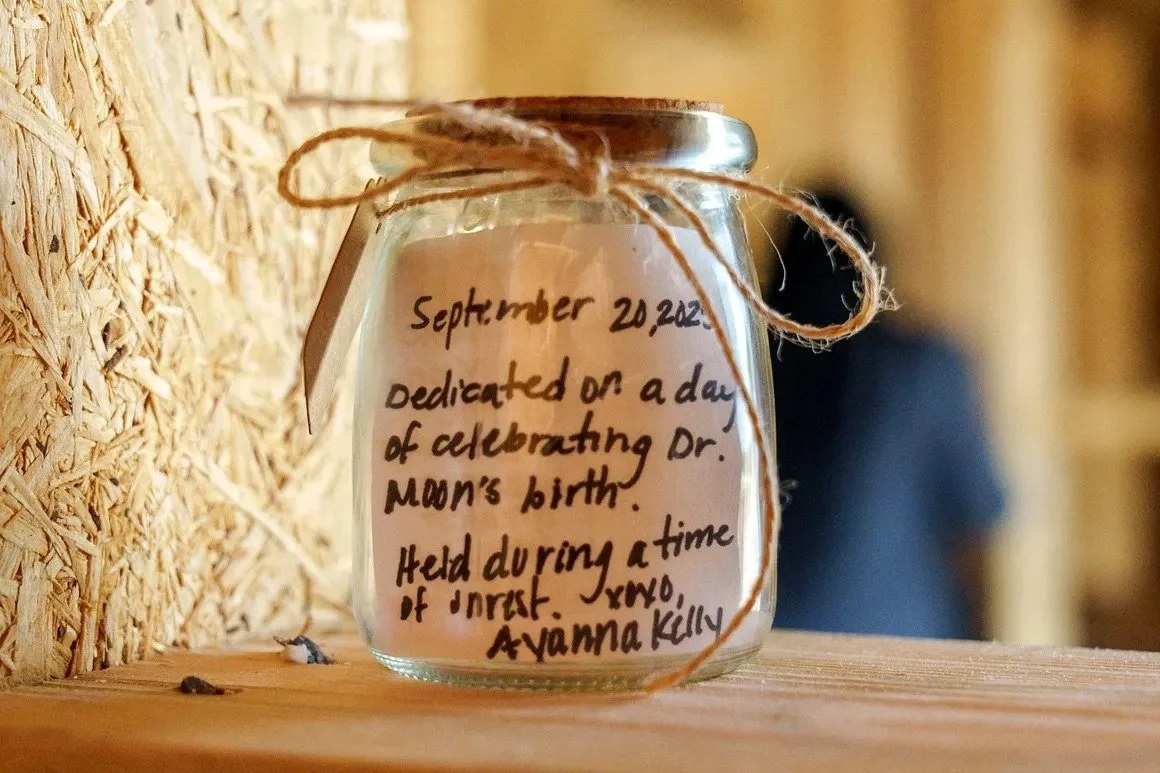 September 20, 202
Dedicated on a day
of celebrating Dr.
Moon's birth.
Held during a time
of unrest. xoxo,
Ayanna Kelly